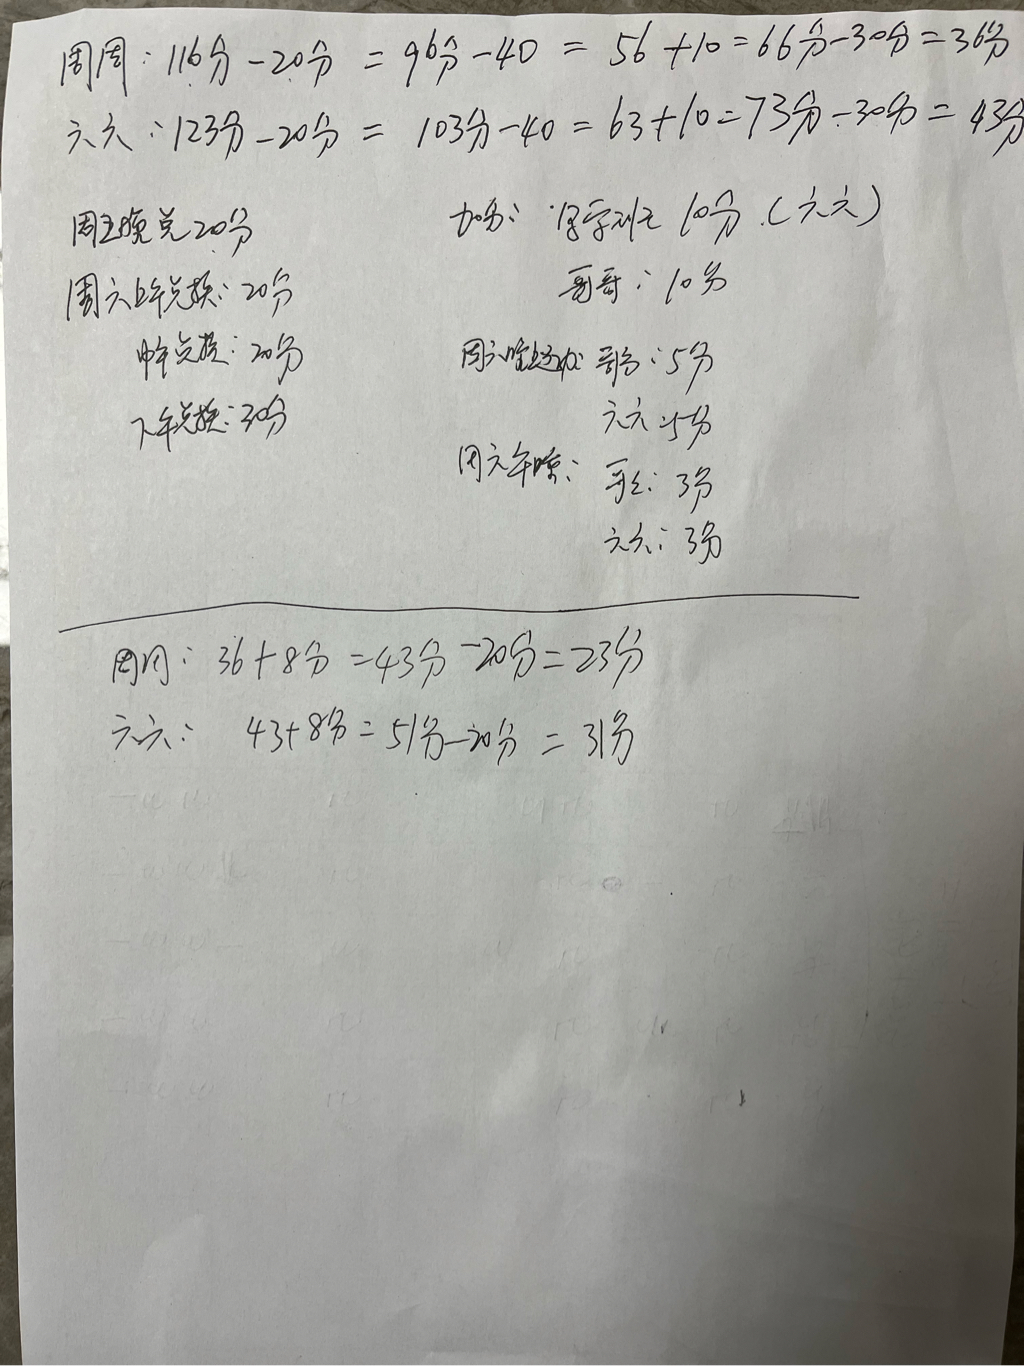 周周：116分-20分 = 96分-40 = 56+10=66分-30分=36分
六六：123分-20分 = 103分-40 = 63+10=73分-30分=43分
周五换兑20分
周六上午兑换：20分
中午兑换：20分
下午兑换：30分
加分： 10分（六六）
哥哥：10分
周六 哥哥：5分
六六：5分
周六午睡： 哥哥：3分
六六：3分
周周：36+8分=43分-20分=23分
六六：43+8分=51分-20分=31分